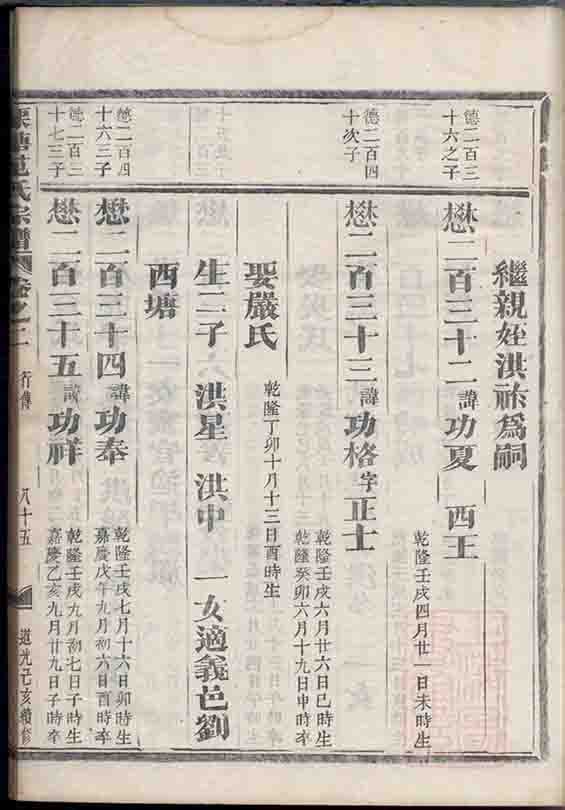 繼親姪洪祚爲嗣
德二百三
十六之子
懋二百三十二 諱功夏 西王
乾隆壬戌四月廿一日未時生
德二百四
十次子
懋二百三十三 諱功格 字正士
乾隆壬戌六月廿六日巳時生
乾隆癸卯六月十九日申時卒
娶嚴氏
乾隆丁卯十月十三日酉時生
生二子 洪星 洪中 一女適義邑劉
西塘
德二百四
十六三子
懋二百三十四 諱功奉
乾隆壬戌七月十六日卯時生
嘉慶戊午九月初六日酉時卒
德二百三
十七三子
懋二百三十五 諱功祥
乾隆壬戌九月初七日子時生
嘉慶乙亥九月廿九日子時卒
范氏宗譜 卷之二 行傳 八十五 道光己亥續修